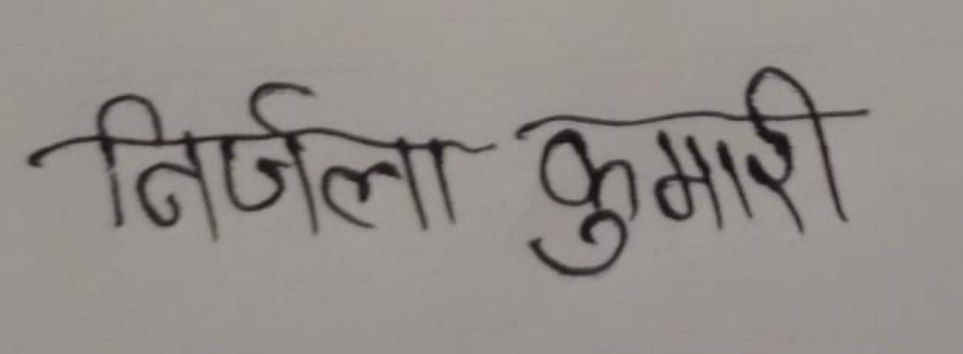 निर्जला कुमारी